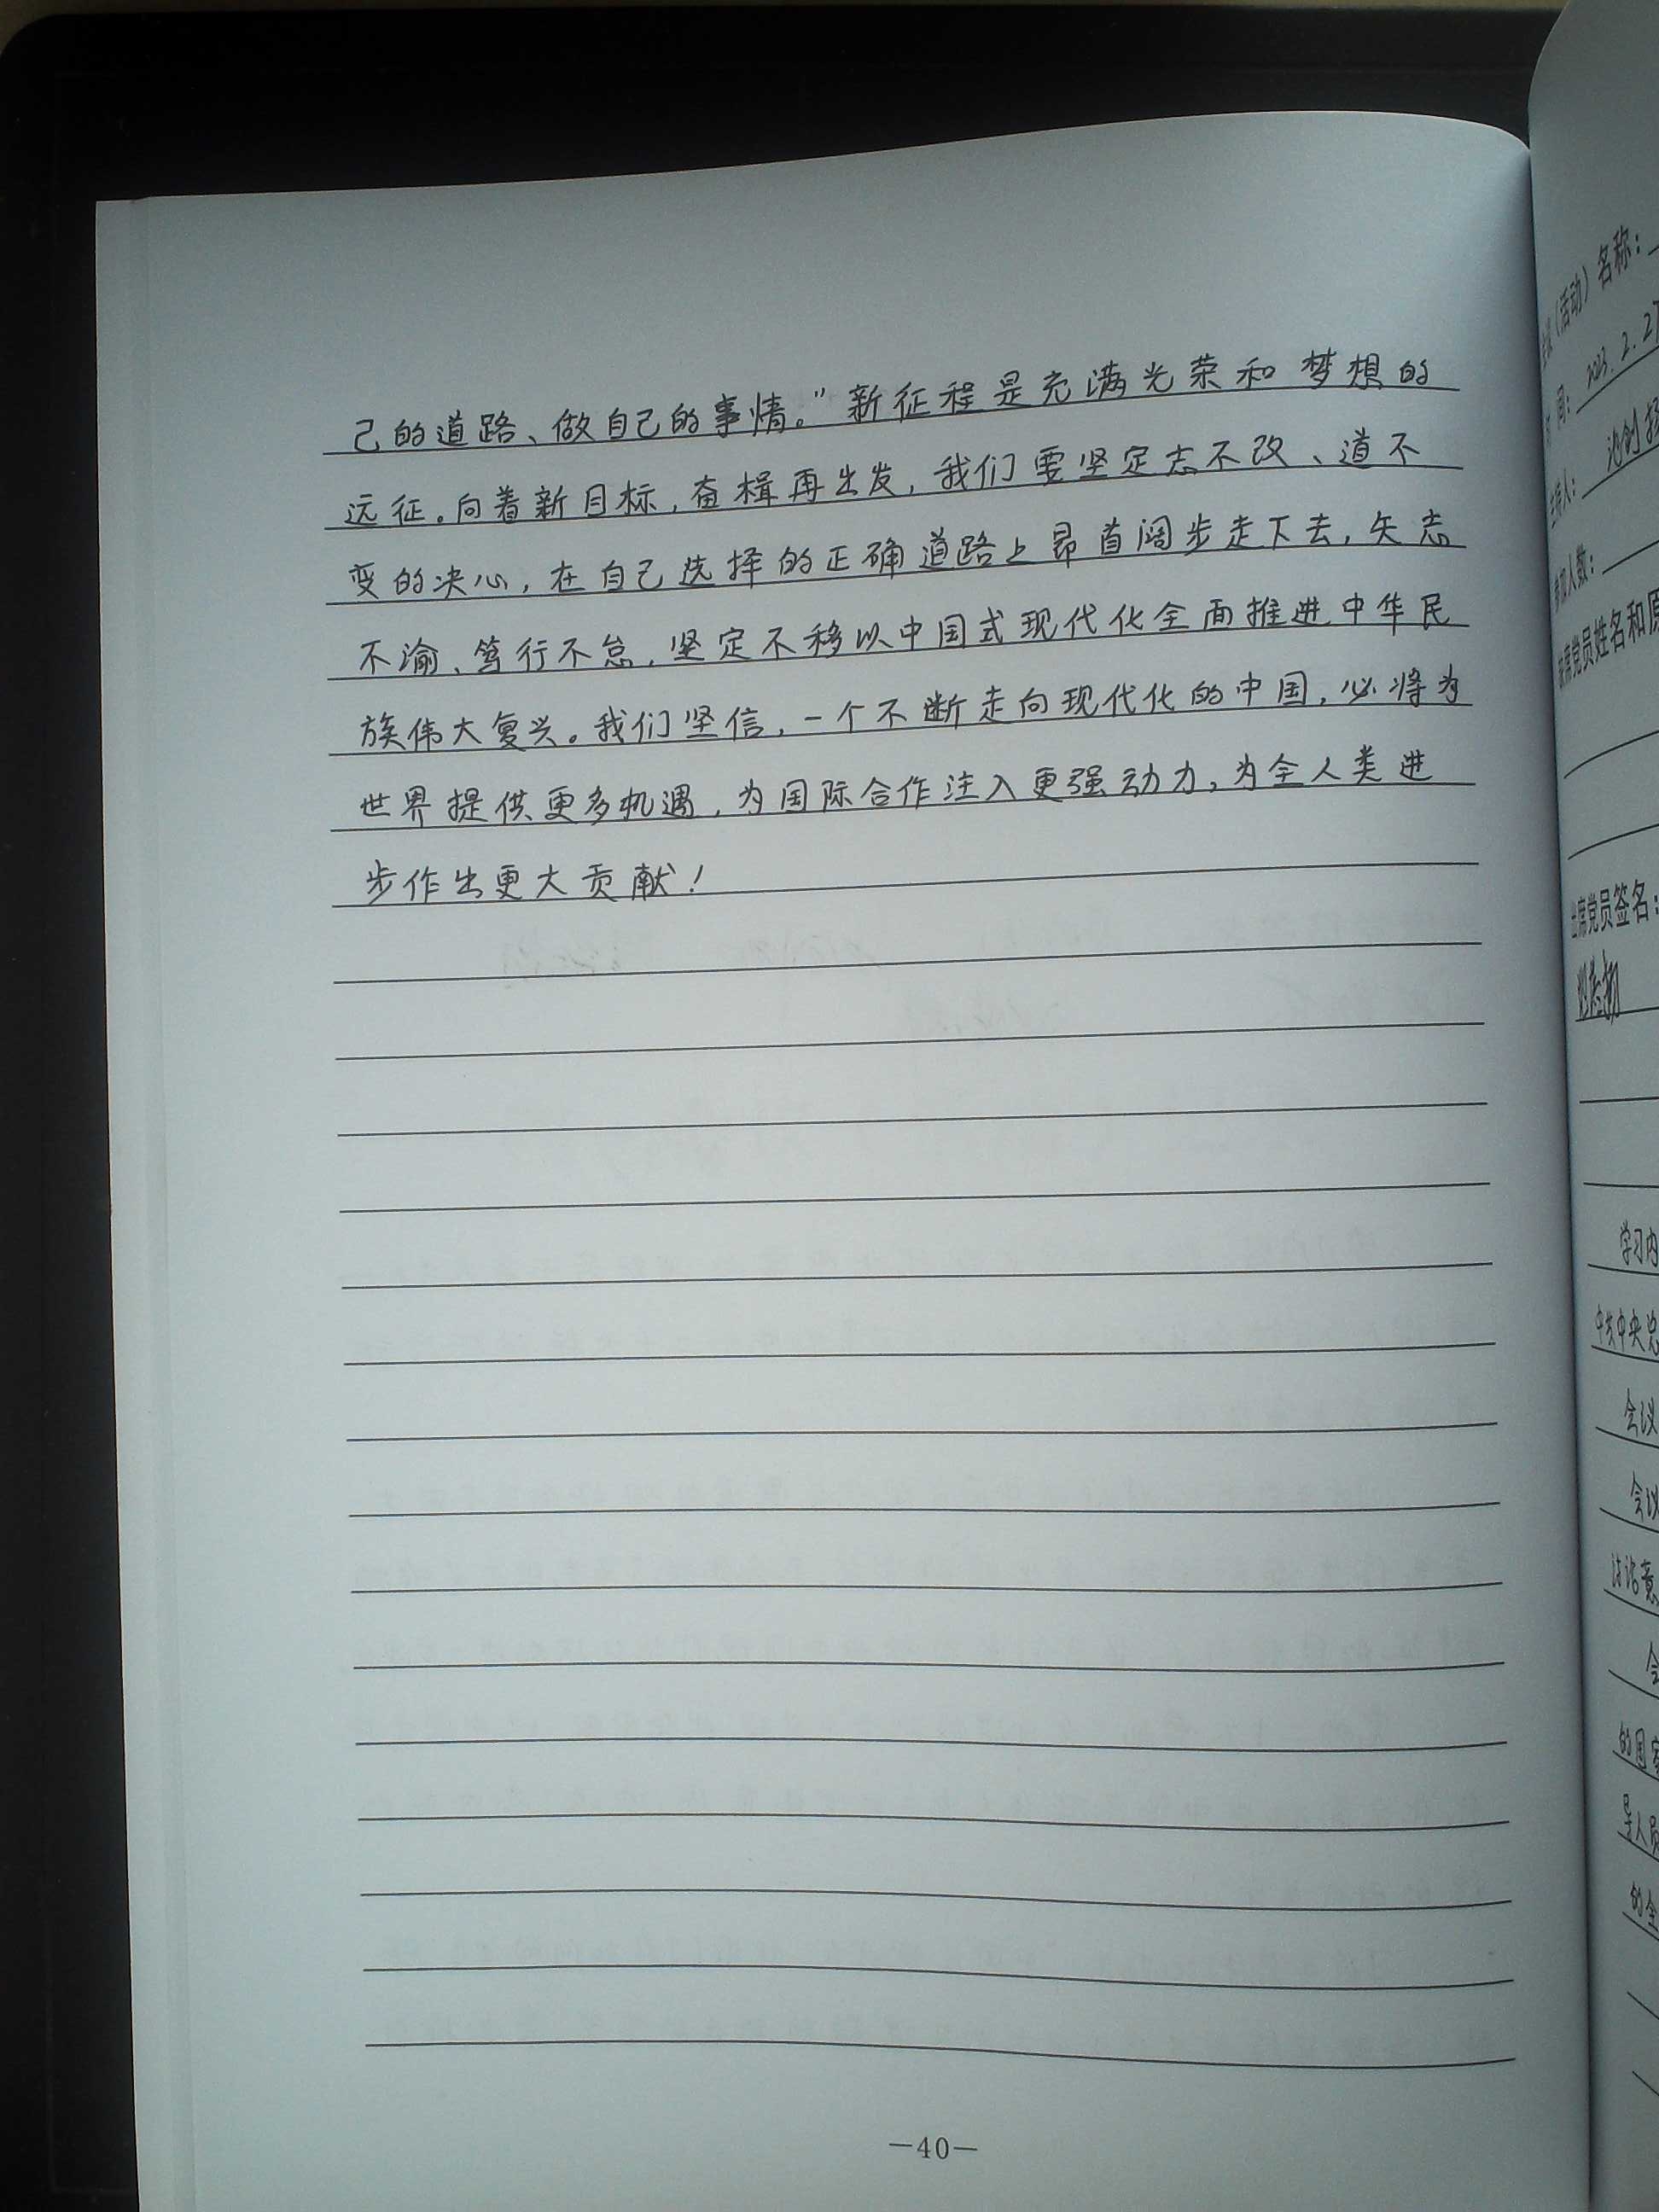 己的道路、做自己的事情。”新征程是充满光荣和梦想的
远征。向着新目标,奋楫再出发,我们要坚定志不改、道不
变的决心,在自己选择的正确道路上昂首阔步走下去,矢志
不渝、笃行不怠,坚定不移以中国式现代化全面推进中华民
族伟大复兴。我们坚信,一个不断走向现代化的中国,必将为
世界提供更多机遇,为国际合作注入更强动力,为全人类进
步作出更大贡献!
—40—
(活动)名称:
间:2023.2.27
主持人:
参加人数:
缺席党员姓名和原
出席党员签名:
学习内
中共中央总
会议
会议
讨论意
会
的国家
导人员
的全